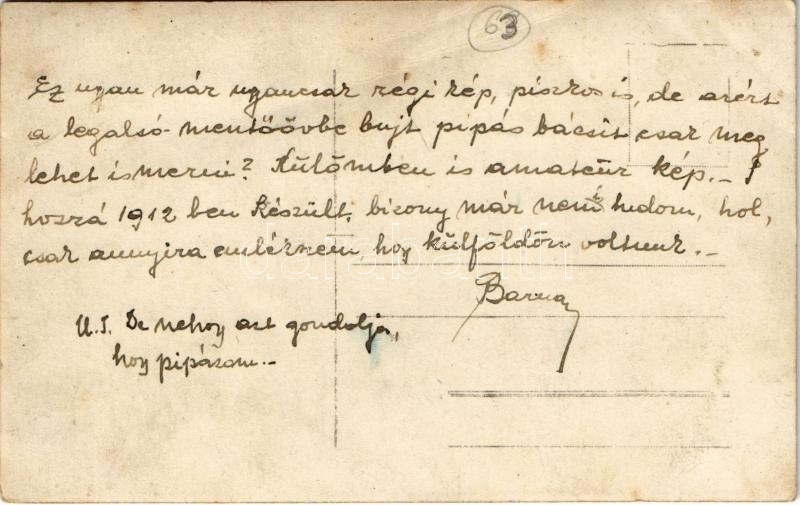 63
Ez ugan már ugancsak régi kép, piszkos is, de azért
a legalsó mentőővbe bujt pipás bácsit csak meg
lehet ismerni? Külömben is amateur kép. -
hozzá 1912 ben készült, bizony már nem is tudom, hol,
csak annyira emlékszem, hoy külföldön voltunk. -
Barna
U.I. De nehoy azt gondolja,
hoy pipázom. -
darabanth